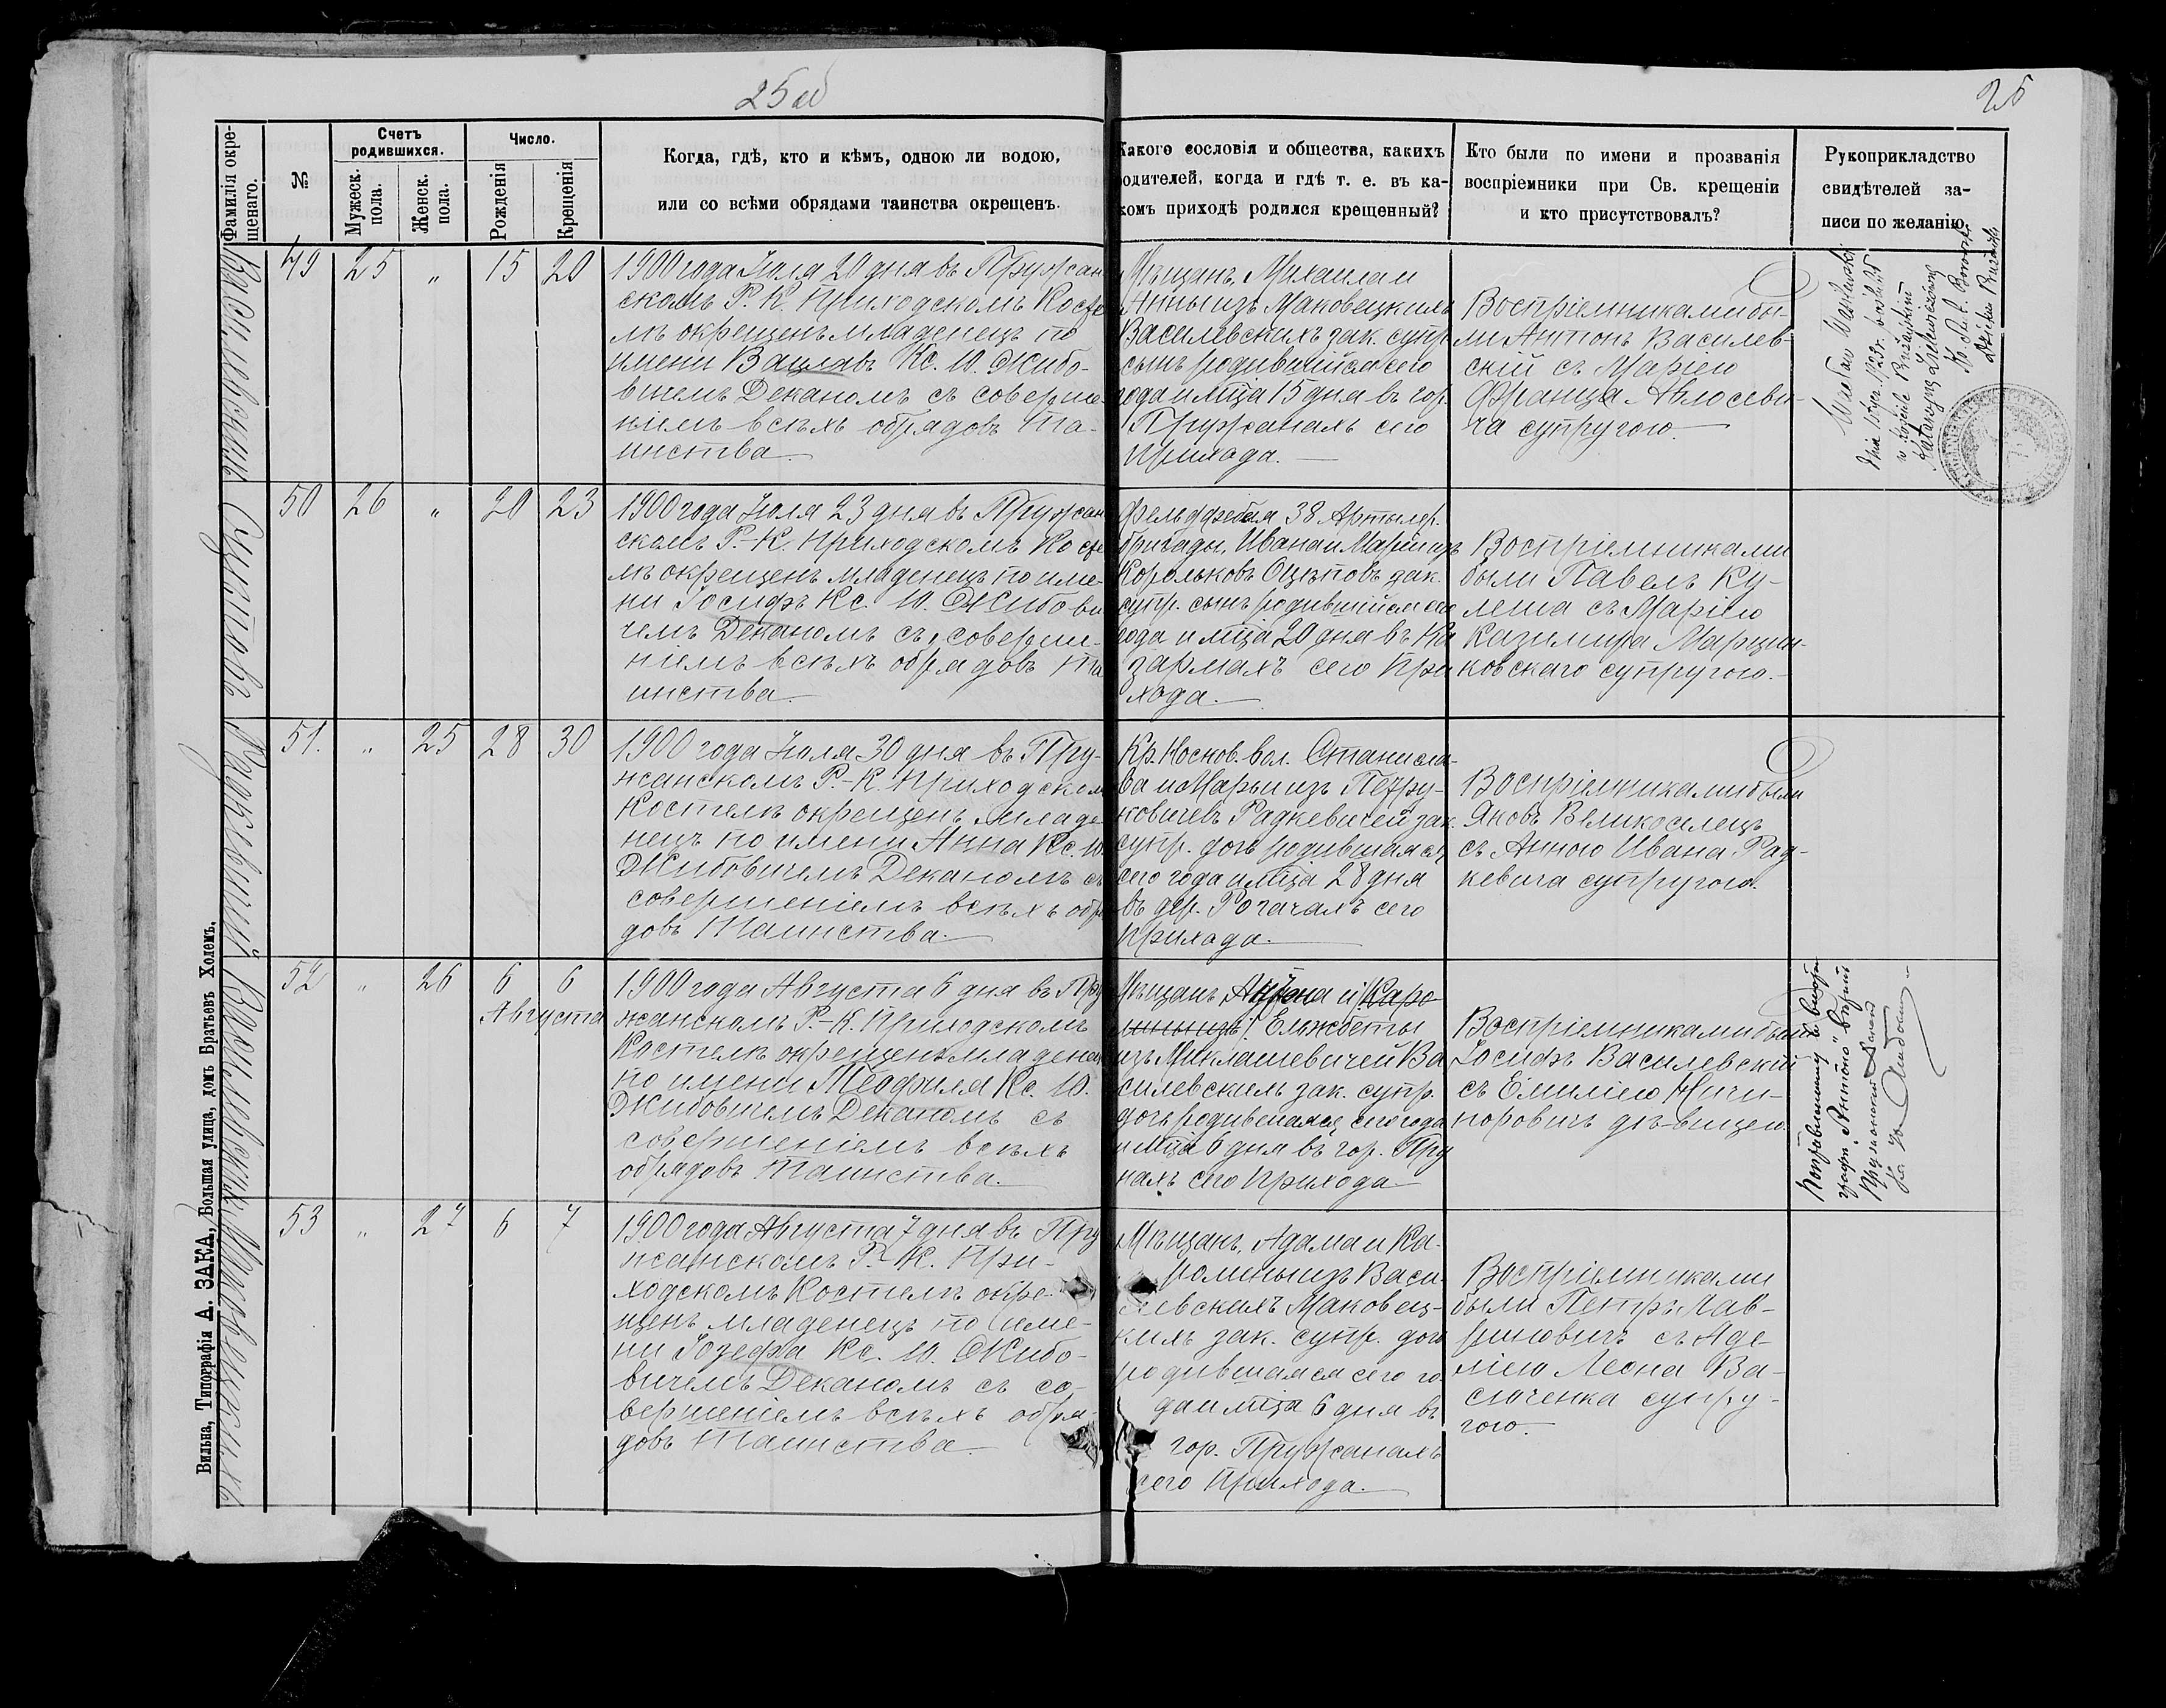 25 об
25
Фамилія окре-
щенаго.
№
Счетъ
родившихся.
Мужеск.
пола.
Женск.
пола.
Число.
Рожденія
Крещенія
Когда, гдѣ, кто и кѣмъ, одною ли водою,
или со всѣми обрядами таинства окрещенъ.
Какого сословія и общества, какихъ
родителей, когда и гдѣ т. е. въ ка-
комъ приходѣ родился крещенный?
Кто были по имени и прозванія
воспріемники при Св. крещеніи
и кто присутствовалъ?
Рукоприкладство
свидѣтелей за-
писи по желанію.
Василевскихъ
49 25 „ 15 20
1900 года Іюля 20 дня въ Пружан
скомъ Р. К. Приходскомъ Косте
лѣ окрещенъ младенецъ по
имени Вацлавъ Кс. Ю. Жибо-
вичемъ Деканомъ съ соверше-
ніемъ всѣхъ обрядовъ та-
инства.
Мѣщанъ, Михаила и
Анны изъ Маковецкихъ
Василевскихъ зак. супр.
сынъ родившійся сего
года и мца 15 дня въ гор.
Пружанахъ сего
прихода.
Воспріемниками бы-
ли Антонъ Василев-
скій съ Маріею
Франца
супругою.
Wacław Wasilewski
50 26 „ 20 23
1900 года Іюля 23 дня въ Пружан
скомъ Р.-К. Приходскомъ Косте
лѣ окрещенъ младенецъ по име-
ни Іосифъ Кс. Ю. Жибови
чемъ Деканомъ съ соверше-
ніемъ всѣхъ обрядовъ та
инства.
Фельдфебеля 38 Артилер.
бригады, Ивана и Маріи изъ
Корольковъ зак.
супр. сынъ родившійся сего
года и мца 20 дня въ Ка
зармахъ сего при
хода.
Воспріемниками
были Павелъ Ку-
леша съ Маріею
Казимира Марцин-
ковскаго супругою.
Радкевичей
51. „ 25 28 30
1900 года Іюля 30 дня въ Пру-
жанскомъ Р.-К. Приходском
Костелѣ окрещенъ младе
нецъ по имени Анна Кс. Ю.
Жибовичемъ Деканомъ съ
совершеніемъ всѣхъ обря
довъ Таинства.
Кр. Носков. вол. Станисла-
ва и Марьи изъ Петру-
ковичевъ Радкевичей зак.
супр. дочь родившаяся
сего года и мца 28 дня
въ дер. Рогачахъ сего
прихода.
Воспріемниками были
Яновъ Великоселецъ
съ Анною Ивана Рад-
кевича супругою.
Василевскихъ
52 „ 26 6 6
Августа
1900 года Августа 6 дня въ Пру
жанскомъ Р.-К. Приходскомъ
Костелѣ окрещенъ младенец
по имени Теофиля Кс. Ю.
Жибовичемъ Деканомъ съ
совершеніемъ всѣхъ
обрядовъ Таинства.
Мѣщанъ Антона и Каро-
лины изъ Елжбеты
изъ Миклашевичей Ва
силевскихъ зак. супр.
дочь родившаяся сего года
и мца 6 дня въ гор. Пру
нахъ сего прихода
Воспріемниками были
Іосифъ Василевскій
съ Емиліею Ничи-
поровичъ дѣвицею.
Маковецкихъ
53 „ 27 6 7
1900 года Августа 7 дня въ Пру
жанскомъ Р.-К. При-
ходскомъ Костелѣ окре-
щенъ младенецъ по име-
ни Іозефа Кс. Ю. Жибо-
вичемъ Деканомъ съ со-
вершеніемъ всѣхъ обря-
довъ Таинства.
Мѣщанъ, Адама и Ка-
ролины изъ Васи-
левскихъ Маковец-
кихъ зак. супр. дочь
родившаяся сего го-
да и мца 6 дня въ
гор. Пружанахъ
сего прихода.
Воспріемниками
были Петръ Лав-
риновичъ съ Аде
ліею Леона Ва-
сюченка супру-
гою.
Вильна, Типографія Д. ЗАКА, Большая улица, домъ Братьевъ Холемъ.